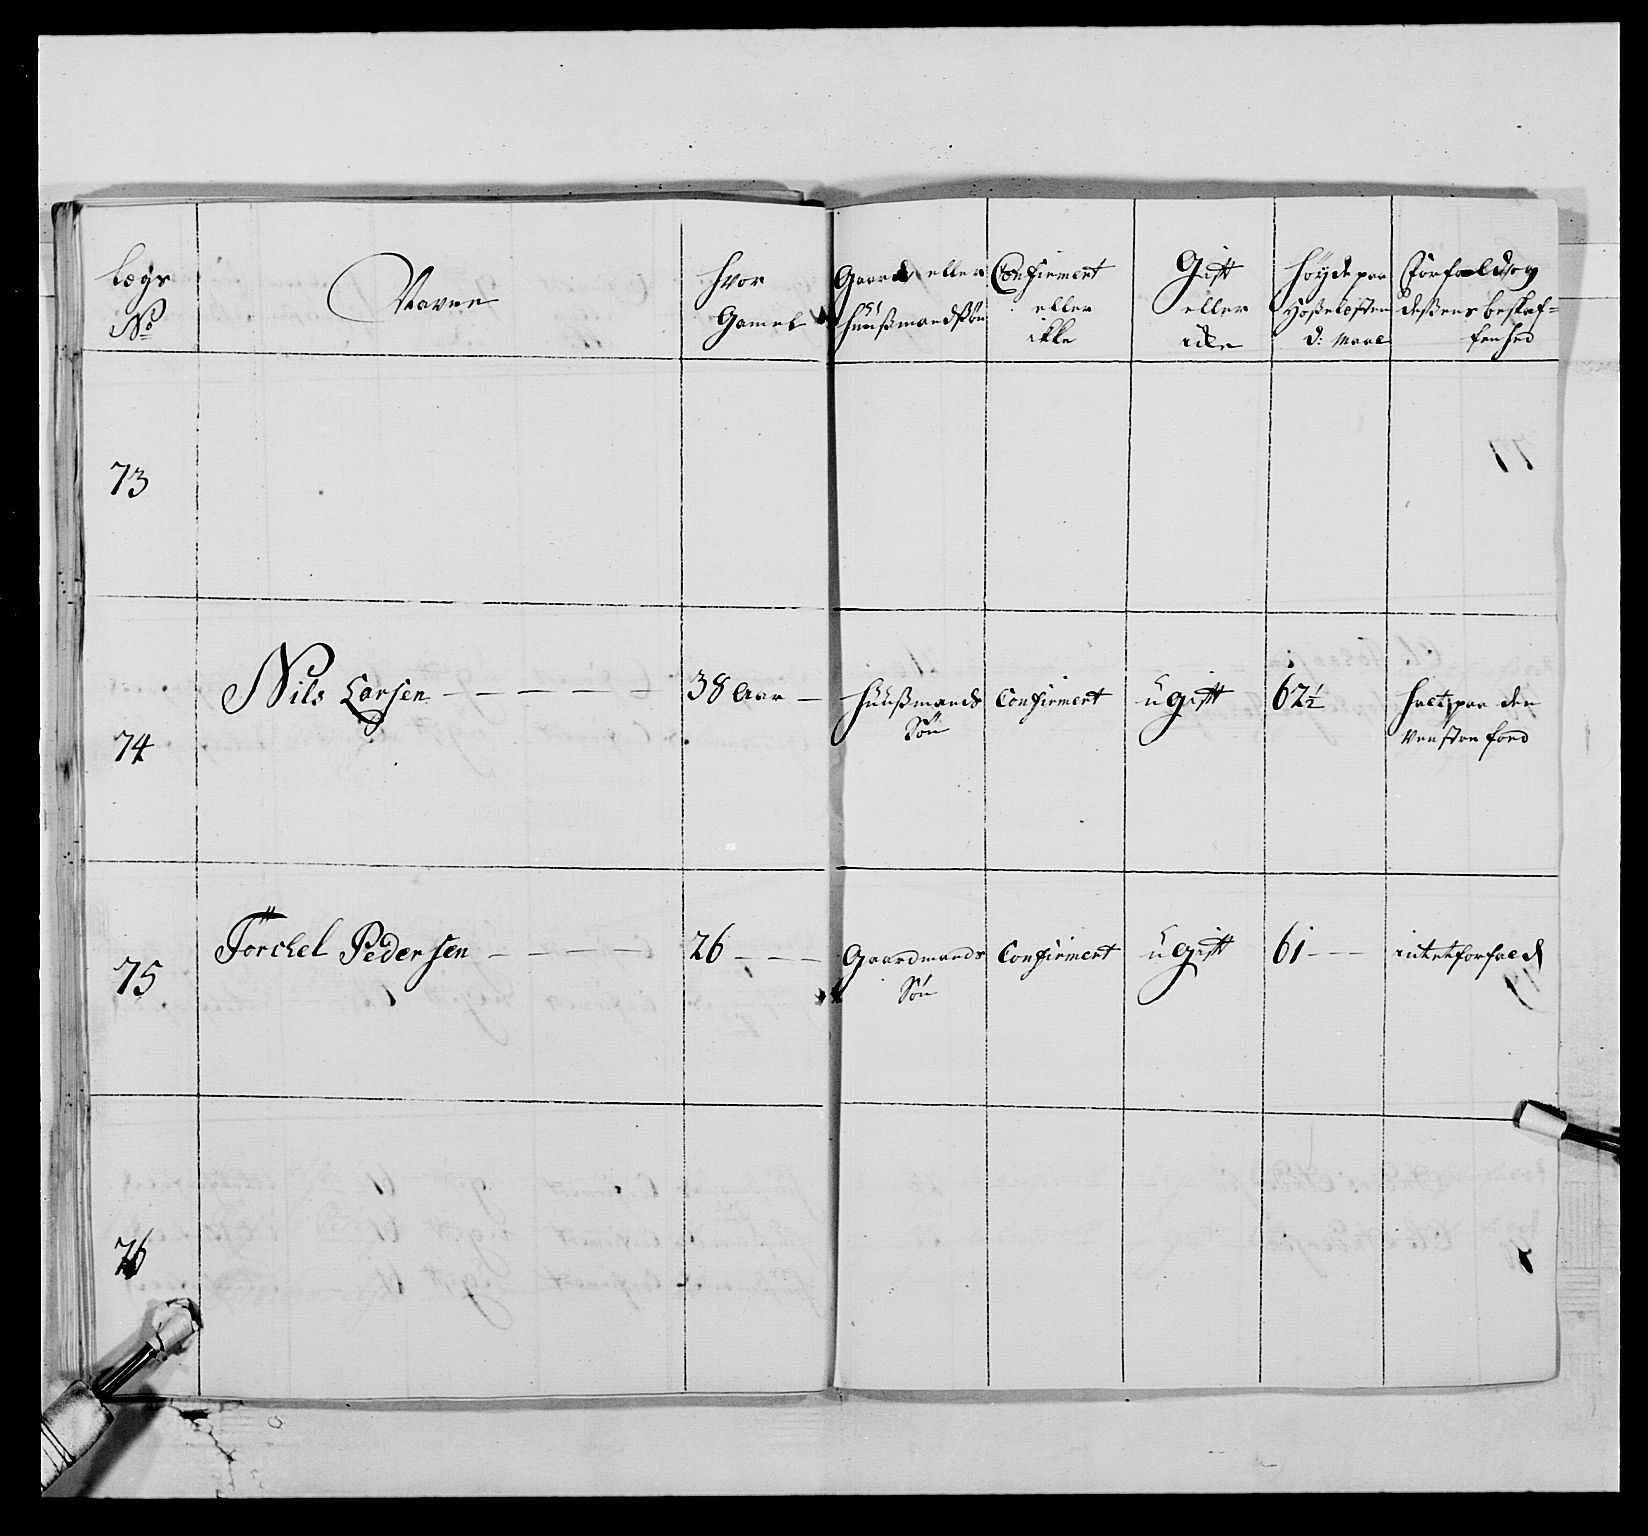 Lægs No
Navne
hvor Gamel
Gaard eller Huußmandssøn
Confirmert eller ikke
Gift eller icke
Høyde paa Hoßelæsten d: Maal
Forfald og deßens beskaffenhed
73
74 Nils Larsen 38 Aar Huußmands Søn Confirmert ugift 62½ halt paa den venstre food
75 Torchel Pedersen 26 Gaardmands Søn Confirmert ugift 61 intet forfald
76